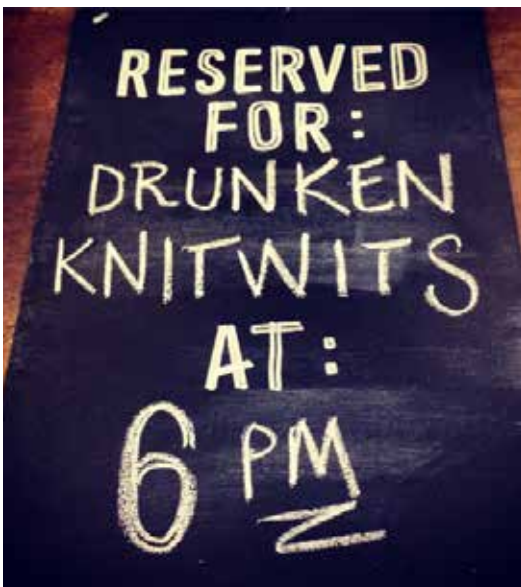 RESERVED
FOR:
DRUNKEN
KNITWITS
AT:
6 PM